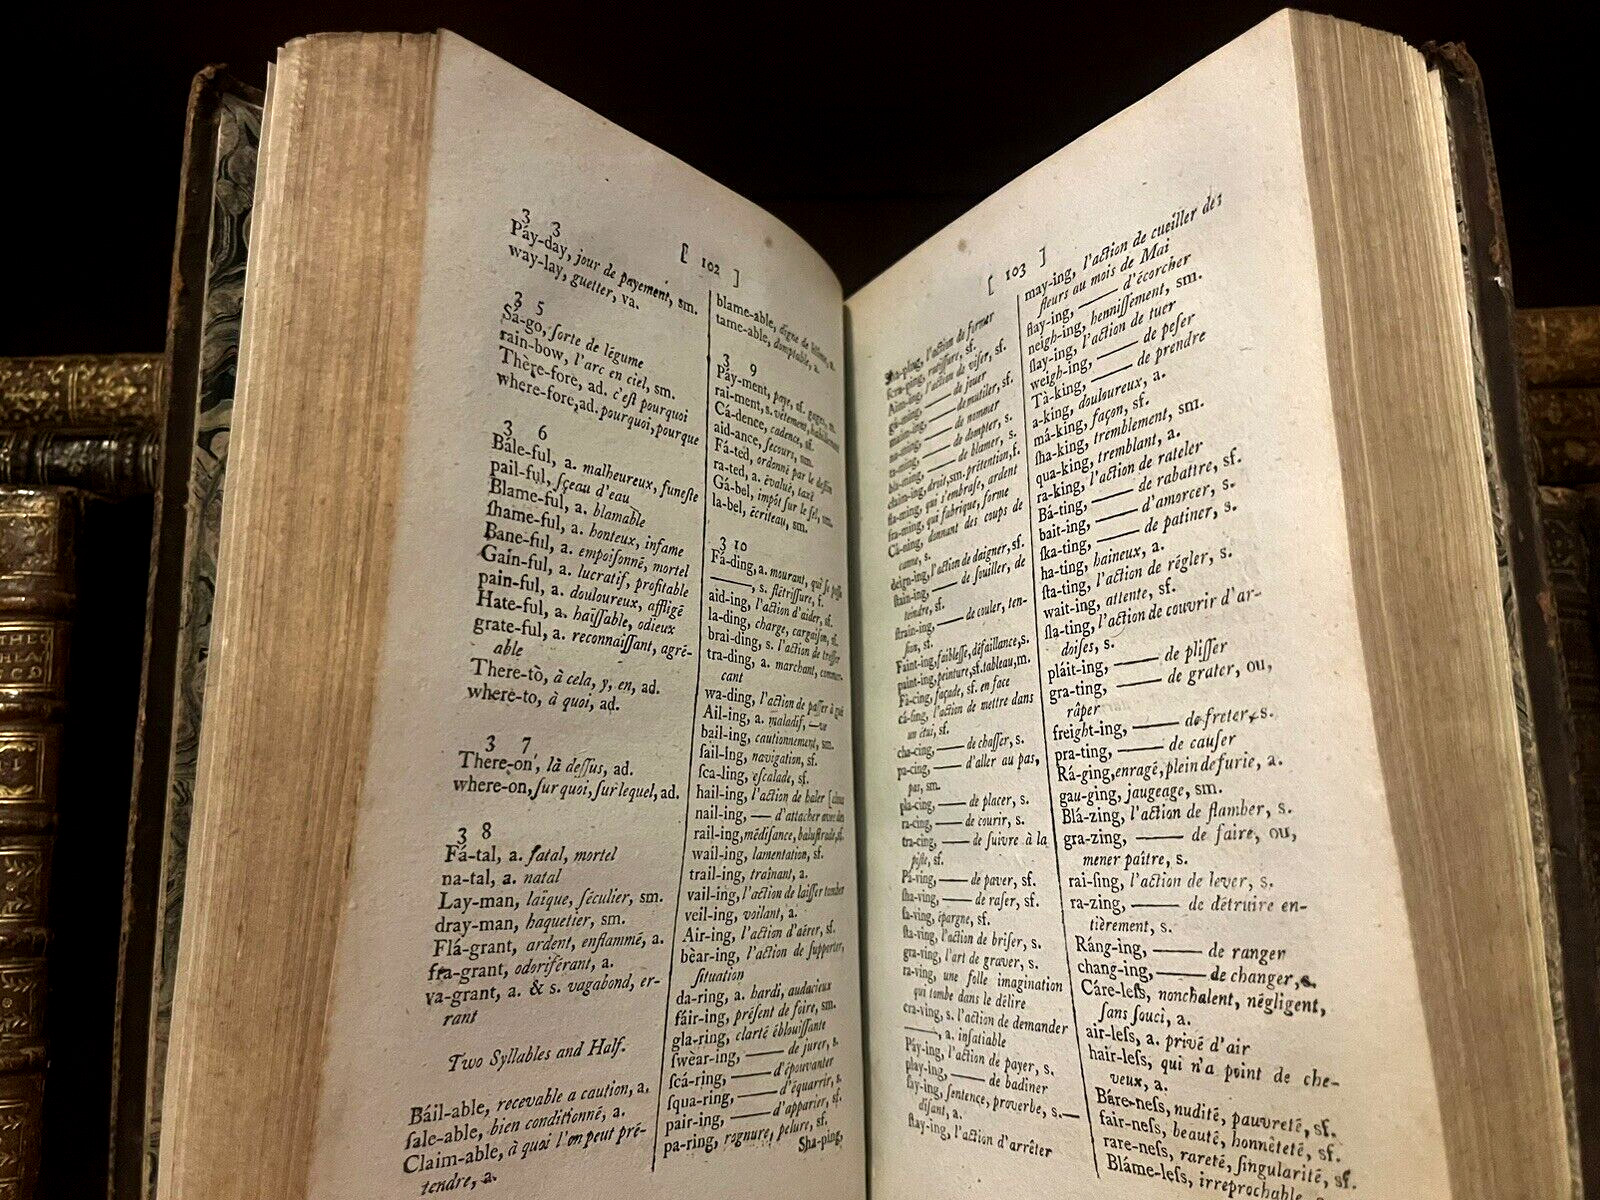 [ 102 ]
3 3
Páy-day, jour de payement, sm.
way-lay, guetter, va.
3 5
Sá-go, ſorte de légume
rain-bow, l'arc en ciel, sm.
Thère-fore, ad. c'eſt pourquoi
where-fore, ad. pourquoi, pourque
3 6
Bále-ful, a. malheureux, funeſte
pail-ful, ſçeau d'eau
Blame-ful, a. blamable
ſhame-ful, a. honteux, infame
Bane-ful, a. empoiſonné, mortel
Gain-ful, a. lucratif, profitable
pain-ful, a. douloureux, affligé
Hate-ful, a. haïſſable, odieux
grate-ful, a. reconnaiſſant, agré-
able
There-tò, à cela, y, en, ad.
where-to, à quoi, ad.
3 7
There-on', là deſſus, ad.
where-on, ſur quoi, ſur lequel, ad.
3 8
Fá-tal, a. fatal, mortel
na-tal, a. natal
Lay-man, laïque, ſéculier, sm.
dray-man, haquetier, sm.
Flá-grant, ardent, enflammé, a.
fra-grant, odoriférant, a.
va-grant, a. & s. vagabond, er-
rant
Two Syllables and Half.
Báil-able, recevable a caution, a.
ſale-able, bien conditionné, a.
Claim-able, à quoi l'on peut pré-
tendre, a.
blame-able, digne de blâme, a.
tame-able, domptable, a.
3 9
Páy-ment, paye, sf. gages, m.
rai-ment, s. vêtement, habillement
Cá-dence, cadence, sf.
aid-ance, ſecours, sm.
Fá-ted, ordonné par le deſtin
ra-ted, a. évalué, taxé
Gá-bel, impôt ſur le ſel, sm.
la-bel, écriteau, sm.
3 10
Fá-ding, a. mourant, qui ſe paſſe
——, s. flétriſſure, f.
aid-ing, l'action d'aider, sf.
la-ding, charge, cargaiſon, sf.
brai-ding, s. l'action de treſſer
tra-ding, a. marchant, commer-
cant
wa-ding, l'action de paſſer à gué
Ail-ing, a. maladif, —ve
bail-ing, cautionnement, sm.
ſail-ing, navigation, sf.
ſca-ling, eſcalade, sf.
hail-ing, l'action de haler
nail-ing, — d'attacher avec des [cloux
rail-ing, médiſance, baluſtrade, sf.
wail-ing, lamentation, sf.
trail-ing, traînant, a.
vail-ing, l'action de laiſſer tomber
veil-ing, voilant, a.
Air-ing, l'action d'aérer, sf.
bèar-ing, l'action de ſupporter,
ſituation
da-ring, a. hardi, audacieux
fáir-ing, préſent de foire, sm.
gla-ring, clarté éblouiſſante
ſwèar-ing, —— de jurer, s.
ſcá-ring, —— d'épouvanter
ſqua-ring, —— d'équarrir, s.
pair-ing, —— d'apparier, sf.
pa-ring, rognure, pelure, sf.
Sha-ping,
[ 103 ]
Sha-ping, l'action de former
ſcra-ping, ratiſſure, sf.
Aim-ing, l'action de viſer, sf.
gá-ming, —— de jouer
maim-ing, —— de mutiler, sf.
na-ming, —— de nommer
ta-ming, —— de dompter, s.
bla-ming, —— de blamer, s.
claim-ing, droit, sm. prétention, f.
fla-ming, qui s'embraſe, ardent
fra-ming, qui fabrique, forme
Cá-ning, donnant des coups de
canne, s.
deign-ing, l'action de daigner, sf.
ſtain-ing, —— de ſouiller, de
teindre, sf.
ſtrain-ing, —— de couler, ten-
ſion, sf.
Faint-ing, faibleſſe, défaillance, s.
paint-ing, peinture, sf. tableau, m.
Fà-cing, façade, sf. en face
cá-ſing, l'action de mettre dans
un étui, sf.
cha-cing, —— de chaſſer, s.
pa-cing, —— d'aller au pas,
pas, sm.
pla-cing, —— de placer, s.
ra-cing, —— de courir, s.
tra-cing, —— de ſuivre à la
piſte, sf.
Pá-ving, —— de paver, sf.
ſha-ving, —— de raſer, sf.
ſa-ving, épargne, sf.
ſta-ving, l'action de briſer, s.
gra-ving, l'art de graver, s.
ra-ving, une folle imagination
qui tombe dans le délire
cra-ving, s. l'action de demander
——, a. inſatiable
Páy-ing, l'action de payer, s.
play-ing, —— de badiner
ſay-ing, ſentence, proverbe, s.—
diſant, a.
ſtay-ing, l'action d'arrêter
may-ing, l'action de cueillir des
fleurs au mois de Mai
flay-ing, —— d'écorcher
neigh-ing, henniſſement, sm.
ſlay-ing, l'action de tuer
weigh-ing, —— de peſer
Tà-king, —— de prendre
a-king, douloureux, a.
má-king, façon, sf.
ſha-king, tremblement, sm.
qua-king, tremblant, a.
ra-king, l'action de rateler
Bá-ting, —— de rabattre, sf.
bait-ing, —— d'amorcer, s.
ſka-ting, —— de patiner, s.
ha-ting, haineux, a.
ſta-ting, l'action de régler, s.
wait-ing, attente, sf.
ſla-ting, l'action de couvrir d'ar-
doiſes, s.
pláit-ing, —— de pliſſer
gra-ting, —— de grater, ou,
râper
freight-ing, —— de freter, s.
pra-ting, —— de cauſer
Rá-ging, enragé, plein de furie, a.
gau-ging, jaugeage, sm.
Blá-zing, l'action de flamber, s.
gra-zing, —— de faire, ou,
mener paître, s.
rai-ſing, l'action de lever, s.
ra-zing, —— de détruire en-
tièrement, s.
Ráng-ing, —— de ranger
chang-ing, —— de changer, s.
Cáre-leſs, nonchalent, négligent,
ſans ſouci, a.
air-leſs, a. privé d'air
hair-leſs, qui n'a point de che-
veux, a.
Báre-neſs, nudité, pauvreté, sf.
fair-neſs, beauté, honnêteté, sf.
rare-neſs, rareté, ſingularité, sf.
Bláme-leſs, irreprochable,